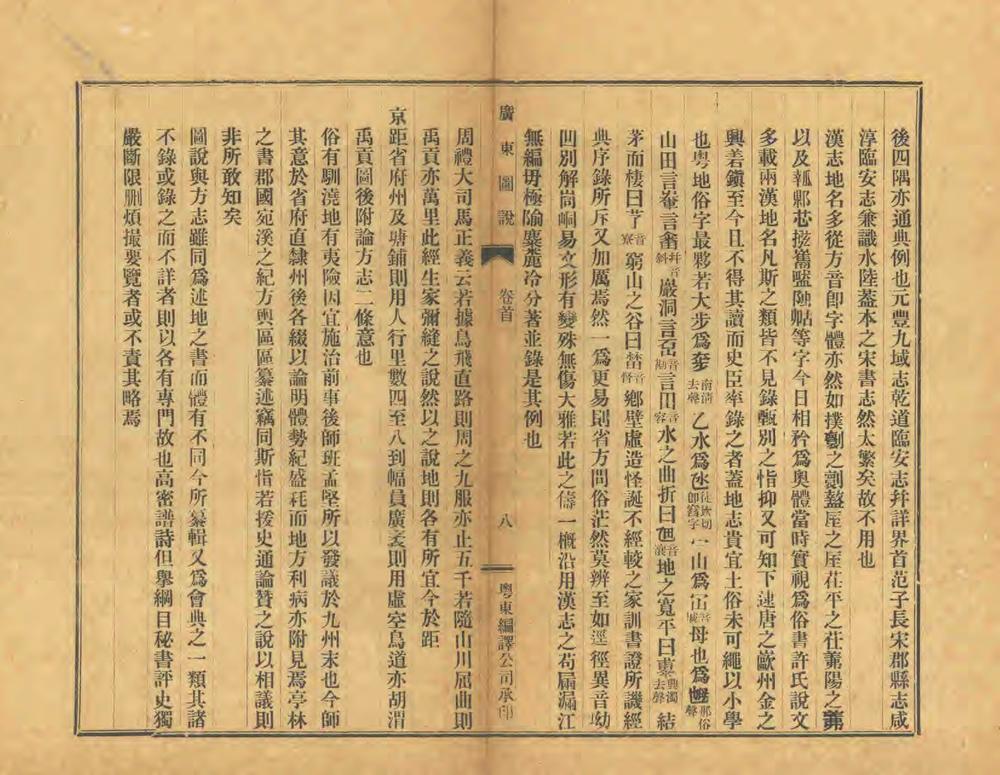 後四隅亦通典例也元豐九域志乾道臨安志幷詳界首范子長宋郡縣志咸
淳臨安志兼識水陸蓋本之宋書志然太繁矣故不用也
漢志地名多從方音卽字體亦然如撲劙之劙盩厔之厔茌平之茌蕭陽之
以及瓡鄡等字今日相矜爲奧體當時實視爲俗書許氏說文
多載兩漢地名凡斯之類皆不見錄甄別之恉抑又可知下逮唐之歙州金之
興若鎭至今且不得其讀而史臣率錄之者蓋地志貴宜土俗未可繩以小學
也粵地俗字最夥若大步爲南淸去聲乙水爲氹徒濫切卽字一山爲音母也爲乸那俗聲
山田言輋言畬幷音斜巖洞言嵒言田音水之曲折曰乪音地之寬平曰典濁去聲結
茅而棲曰音寮窮山之谷曰音督鄕壁虛造怪誕不經較之家訓書證所譏經
典序錄所斥又加厲焉然一爲更易則省方問俗茫然莫辨至如逕徑異音坳
凹別解峒易文形有變殊無傷大雅若此之儔一槪沿用漢志之苟屚漏江
無編毋極隃麋麓泠分著並錄是其例也
廣東圖說 卷首 八 粵東編譯公司承印
周禮大司馬正義云若據鳥飛直路則周之九服亦止五千若隨山川屈曲則
禹貢亦萬里此經生家彌縫之說然以之說地則各有所宜今於距
京距省府州及塘鋪則用人行里數四至八到幅員廣袤則用虛空鳥道亦胡渭
禹貢圖後附論方志二條意也
俗有馴澆地有夷險因宜施治前事後師班孟堅所以發議於九州末也今師
其意於省府直隸州後各綴以論明體勢紀盛衰而地方利病亦附見焉亭林
之書郡國宛溪之紀方輿區區纂述竊同斯恉若援史通論贊之說以相議則
非所敢知矣
圖說與方志雖同爲述地之書而體有不同今所纂輯又爲會典之一類其諸
不錄或錄之而不詳者則以各有專門故也高密譜詩但擧綱目秘書評史獨
嚴斷限刪煩撮要覽者或不責其略焉